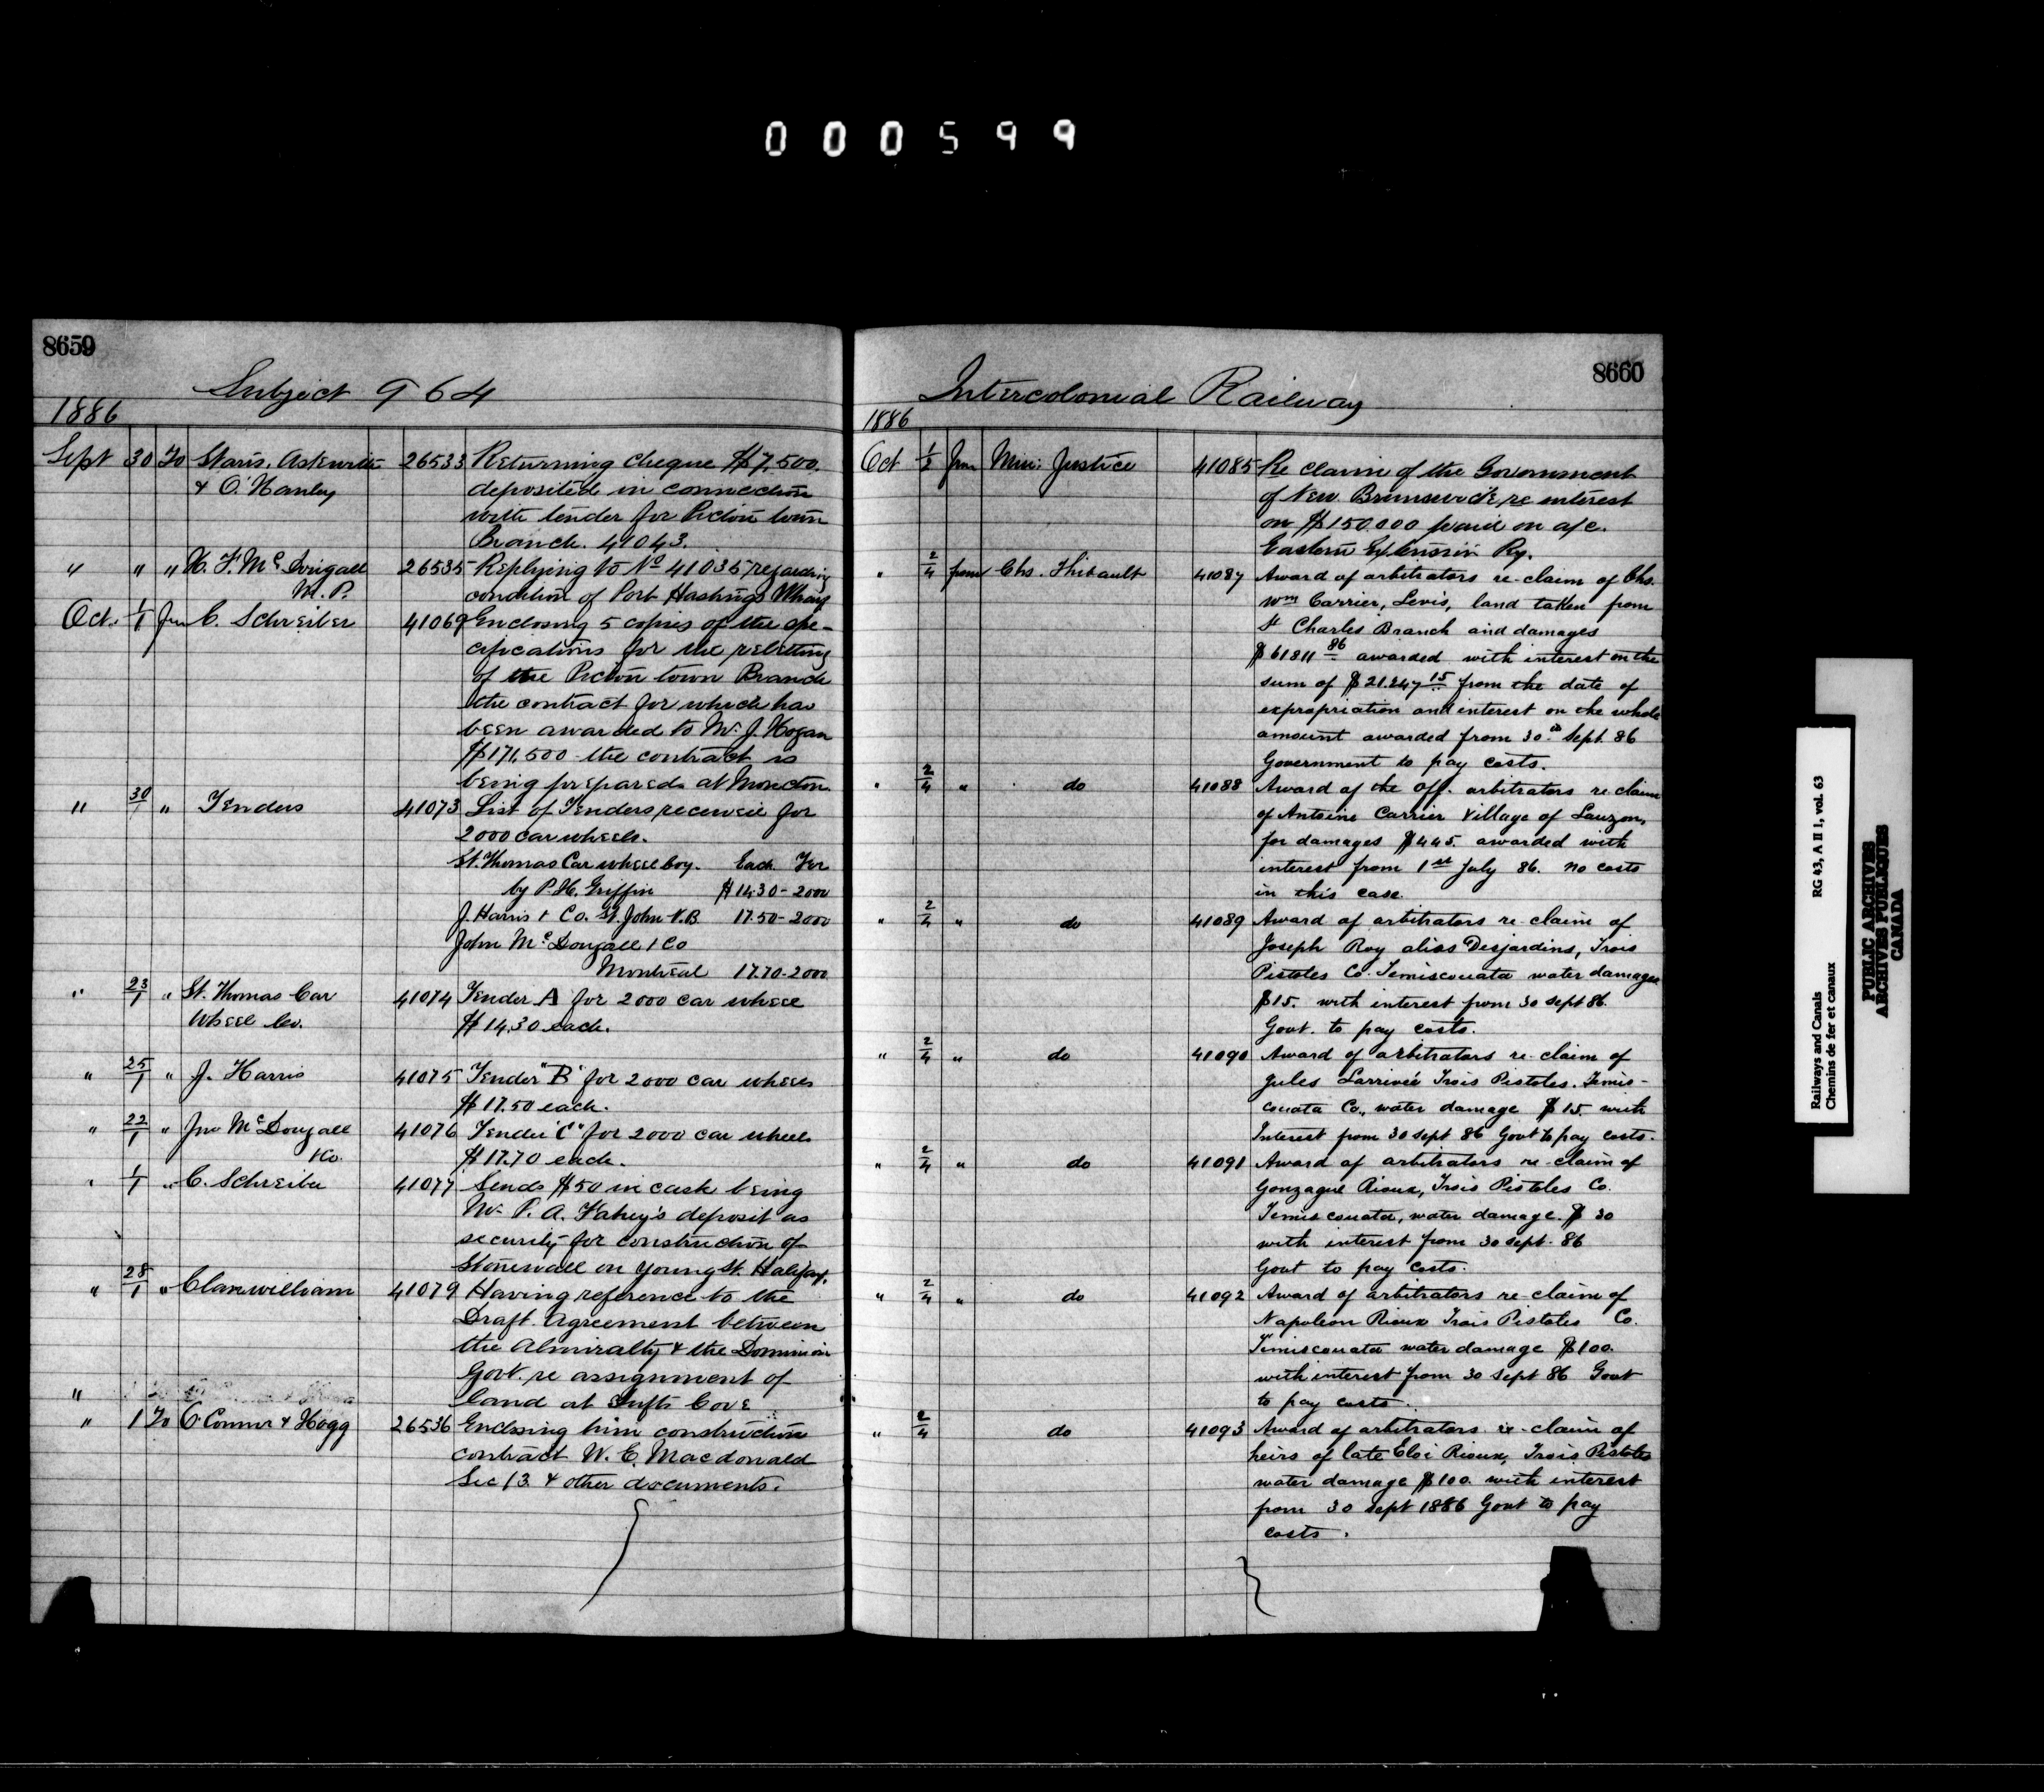 000599
8659
Subject 964
1886
Sept 30 To Stairs,
& O'Hanly
26533 Returning cheque $7,500.
deposited in connection
with tender for Pictou town
Branch. 41043.
" " " H. F. McDougall
M. P.
26535 Replying to No 41035 regarding
condition of Port Hastings Wharf
Oct. 1/1 Frm C. Schreiber 41069 Enclosing 5 copies of the spe-
cifications for the reletting
of the Pictou town Branch
the contract for which has
been awarded to Mr J. Hogan
$171,500 - the contract is
being prepared at Moncton.
" 30/1 " Tenders 41073 List of Tenders received for
2000 car wheels.
St. Thomas Car wheel Coy. Each For
by P. H. Griffin $14.30 - 2000
J. Harris & Co. St. John N.B. 17.50 - 2000
John McDougall & Co
Montreal 17.70 - 2000
" 23/1 " St. Thomas Car
Wheel Co.
41074 Tender A for 2000 car wheel
$14.30 each.
" 25/1 " J. Harris 41075 Tender "B" for 2000 car wheels
$17.50 each.
" 22/1 " Jno McDougall
& Co.
41076 Tender "C" for 2000 car wheels
$17.70 each.
" 1/1 " C. Schreiber 41077 Sends $50 in cash being
Mr P. A. Fahey's deposit as
security for construction of
Stonewall on Young St. Halifax.
" 28/1 " Clanwilliam 41079 Having reference to the
Draft Agreement between
the Admiralty & the Dominion
Govt. re assignment of
land at Tufts Cove
"
" 1 To O'Connor & Hogg 26536 Enclosing him construction
contract W. E. Macdonald
Sec 13 & other documents.
8660
Intercolonial Railway
1886
Oct 1/2 from Min: Justice 41085 Re claim of the Government
of New Brunswick, re interest
on $150.000 paid on a/c.
Eastern Extension Ry.
" 2/4 from Chs. Thibault 41087 Award of arbitrators re-claim of Chs.
Wm Carrier, Levis, land taken from
St Charles Branch and damages
$61811 86 awarded with interest on the
sum of $21.247 15 from the date of
expropriation and interest on the whole
amount awarded from 30th Sept. 86
Government to pay costs.
" 2/4 " do 41088 Award of the off. arbitrators re claim
of Antoine Carrier Village of Lauzon,
for damages $445. awarded with
interest from 1st July 86. no costs
in this case.
" 2/4 " do 41089 Award of arbitrators re-claim of
Joseph Roy alias Desjardins, Trois
Pistoles Co. Temiscouata water damages
$15. with interest from 30 Sept 86.
Govt. to pay costs.
" 2/4 " do 41090 Award of arbitrators re-claim of
Jules Larrivée Trois Pistoles. Temis-
couata Co., water damage $15. with
Interest from 30 sept 86 Govt to pay costs.
" 2/4 " do 41091 Award of arbitrators re-claim of
Gonzague Rioux, Trois Pistoles Co.
Temiscouata, water damage. $30
with interest from 30 sept. 86
Govt to pay costs.
" 2/4 " do 41092 Award of arbitrators re-claim of
Napoleon Rioux Trois Pistoles Co.
Temiscouata water damage $100.
with interest from 30 Sept 86 Govt
to pay costs.
" 2/4 do 41093 Award of arbitrators re-claim of
heirs of late Eloi Rioux, Trois Pistoles
water damage $100. with interest
from 30 sept 1886 Govt to pay
costs.
Railways and Canals RG 43, A II 1, vol. 63
Chemins de fer et canaux
PUBLIC ARCHIVES
ARCHIVES PUBLIQUES
CANADA